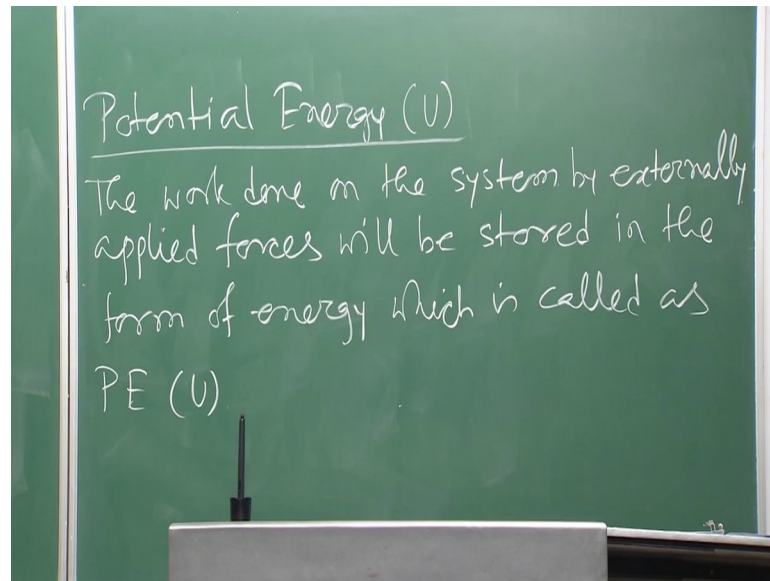 Potential Energy (U)
The work done on the system by externally
applied forces will be stored in the
form of energy which is called as
PE (U)